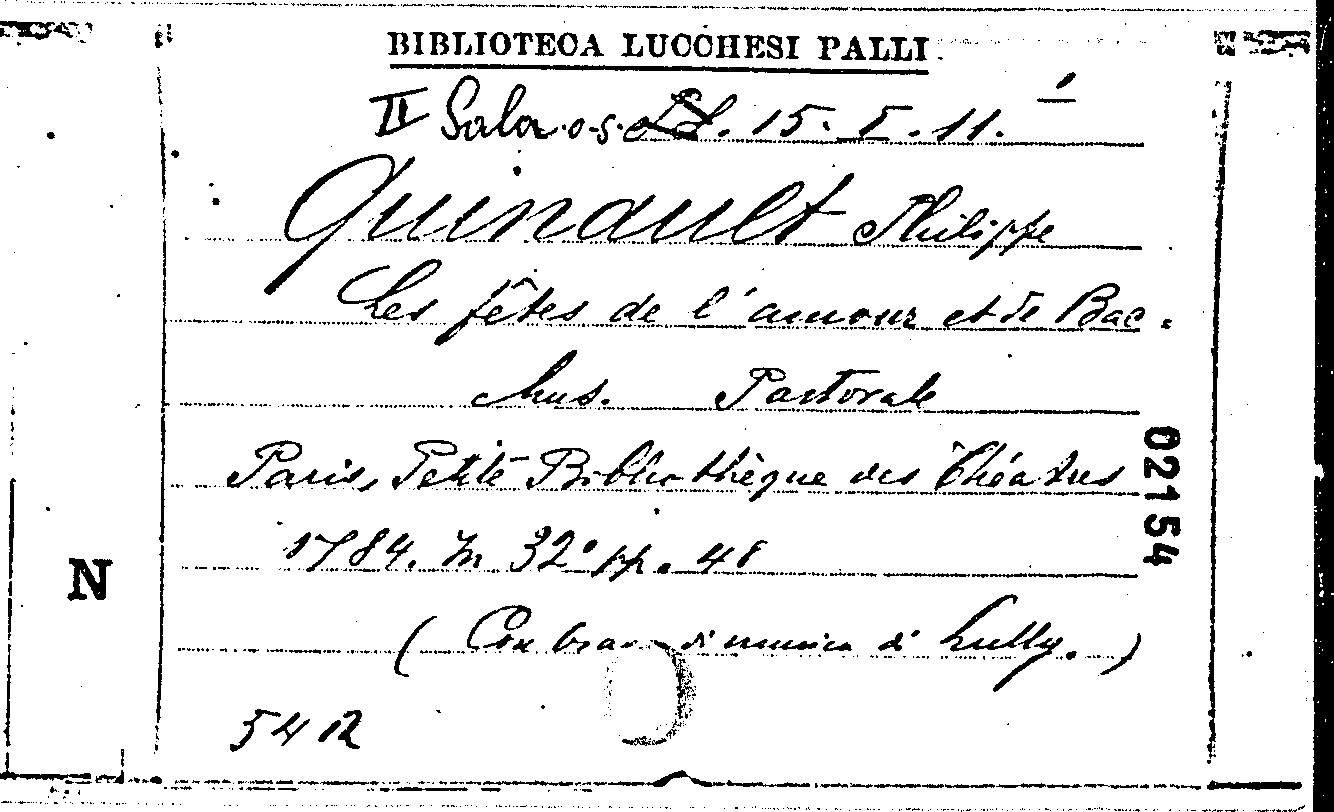 BIBLIOTECA LUCCHESI PALLI
II Sala 15. I. 11. 1
Quinault Philippe
Les fêtes de l'amour et de Bac-
chus. Pastorale
Paris, Petite Bibliothèque des Théatres
1784. In 32° pp. 48
(Con brani di musica di Lully.)
5412
N
02154